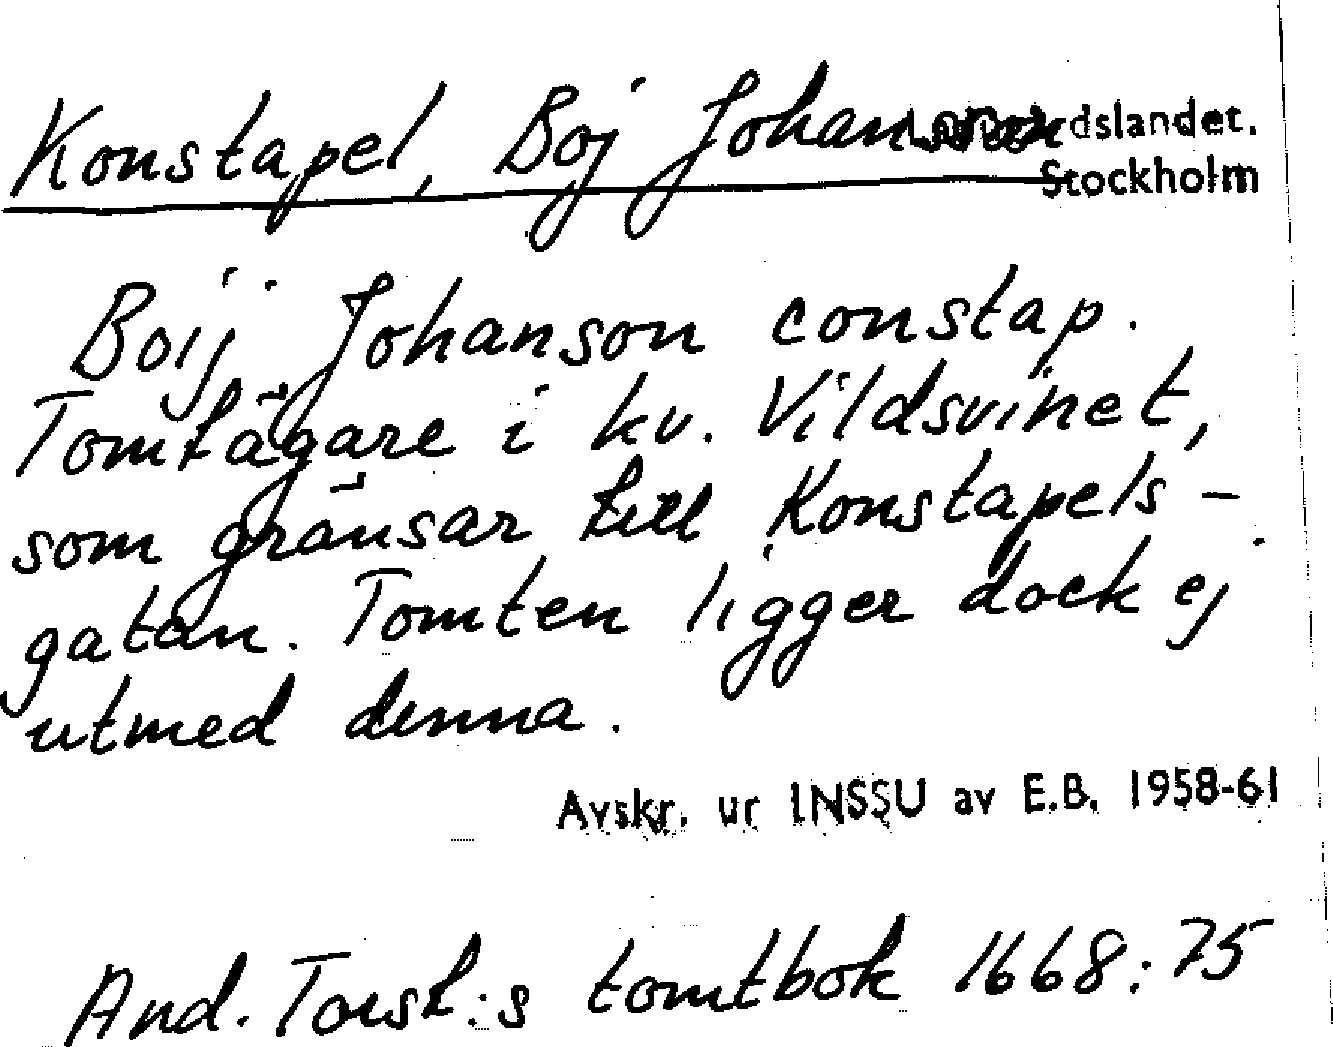 Konstapel, Boj Johanson
Ladugårdslandet.
Stockholm
Boij Johanson constap.
Tomtägare i kv. Vildsvinet,
som gränsar till Konstapels-
gatan. Tomten ligger dock ej
utmed denna.
Avskr. ur INSSU av E.B. 1958-61
And. Torst:s tomtbok 1668:75